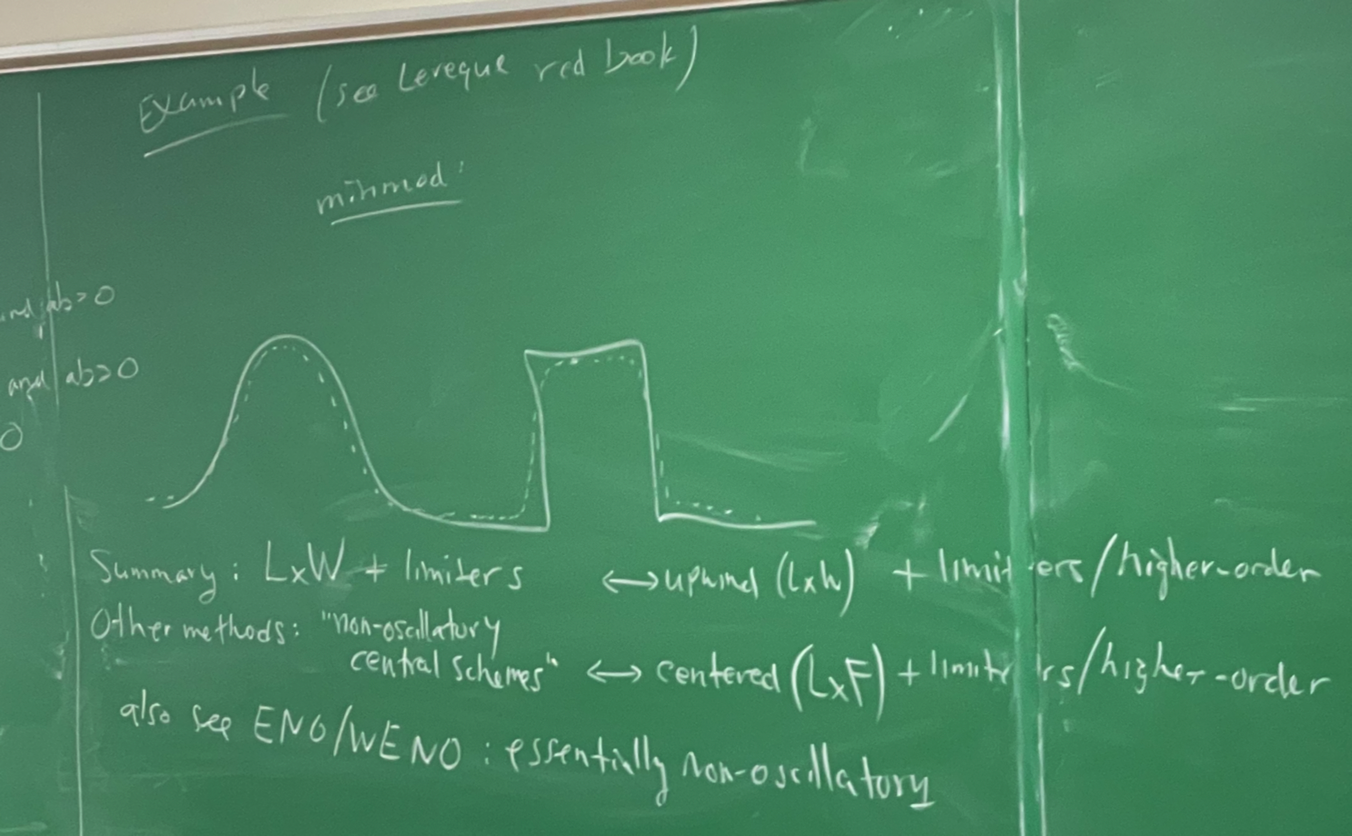 Example (see Leveque red book)
minmod:
and ab>0
and ab>0
0
Summary: LxW + limiters ↔ upwind (LxW) + limiters/higher-order
Other methods: "non-oscillatory
central schemes" ↔ centered (LxF) + limiters/higher-order
also see ENO/WENO: essentially non-oscillatory